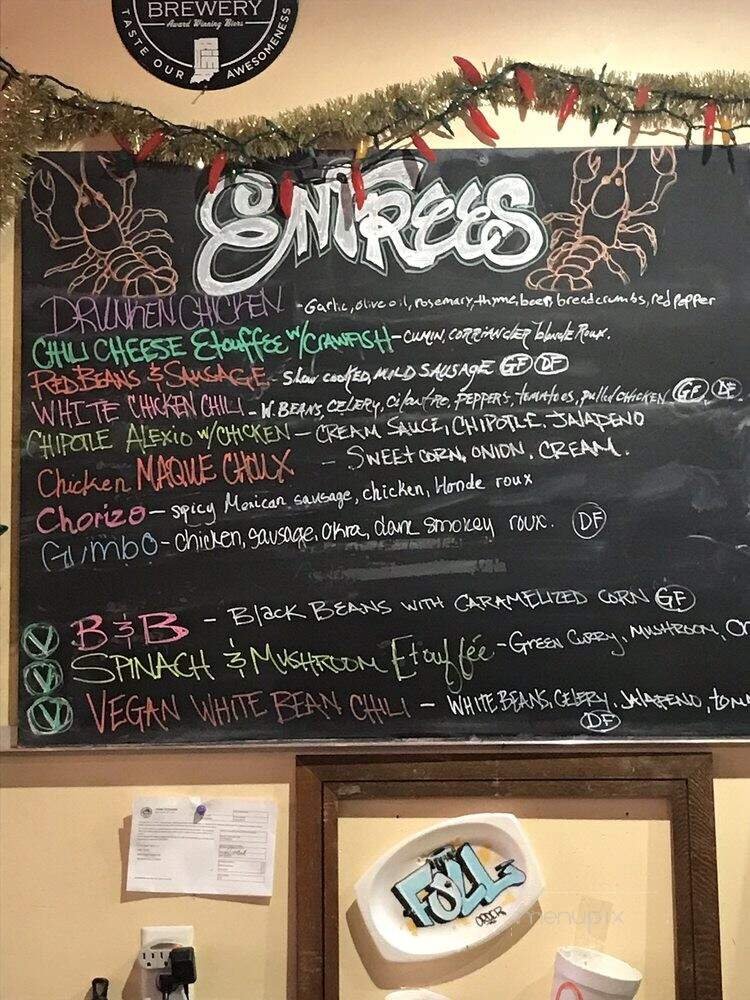 BREWERY
Award Winning Biers
TASTE OUR AWESOMENESS
ENTREES
DRUNKEN CHICKEN - Garlic, olive oil, rosemary, thyme, beer, breadcrumbs, red pepper
CHILI CHEESE Etouffee w/CRAWFISH - CUMIN, CORRIANDER blonde Roux.
RED BEANS & SAUSAGE - Slow cooked, MILD SAUSAGE GF DF
WHITE CHICKEN CHILI - W. BEANS, CELERY, cilantro, PEPPERS, tomatoes, pulled CHICKEN GF DF
CHIPOTLE ALEXIO W/CHICKEN - CREAM SAUCE, CHIPOTLE, JALAPENO
Chicken MAQUE CHOUX - SWEET CORN, ONION, CREAM.
Chorizo - spicy Mexican sausage, chicken, blonde roux
Gumbo - chicken, sausage, okra, dark smokey roux. DF
V B & B - Black BEANS WITH CARAMELIZED CORN GF
V SPINACH & MUSHROOM Etouffée - GREEN CURRY, MUSHROOM,
V VEGAN WHITE BEAN CHILI - WHITE BEANS, CELERY, JALAPENO, tom
DF
FULL
ORDER
menupix